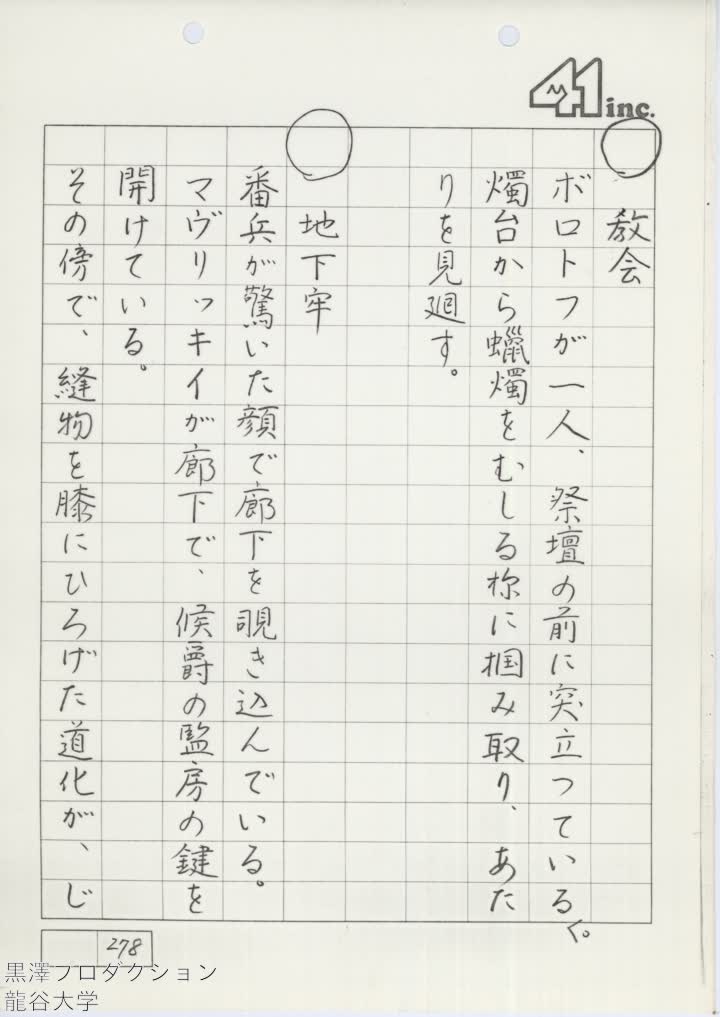 41 inc.
教会
ボロトフが一人、祭壇の前に突立つている。
燭台から蠟燭をむしる様に掴み取り、あた
りを見廻す。
地下牢
番兵が驚いた顔で廊下を覗き込んでいる。
マヴリッキイが廊下で、候爵の監房の鍵を
開けている。
その傍で、縫物を膝にひろげた道化が、じ
278
黒澤プロダクション
龍谷大学